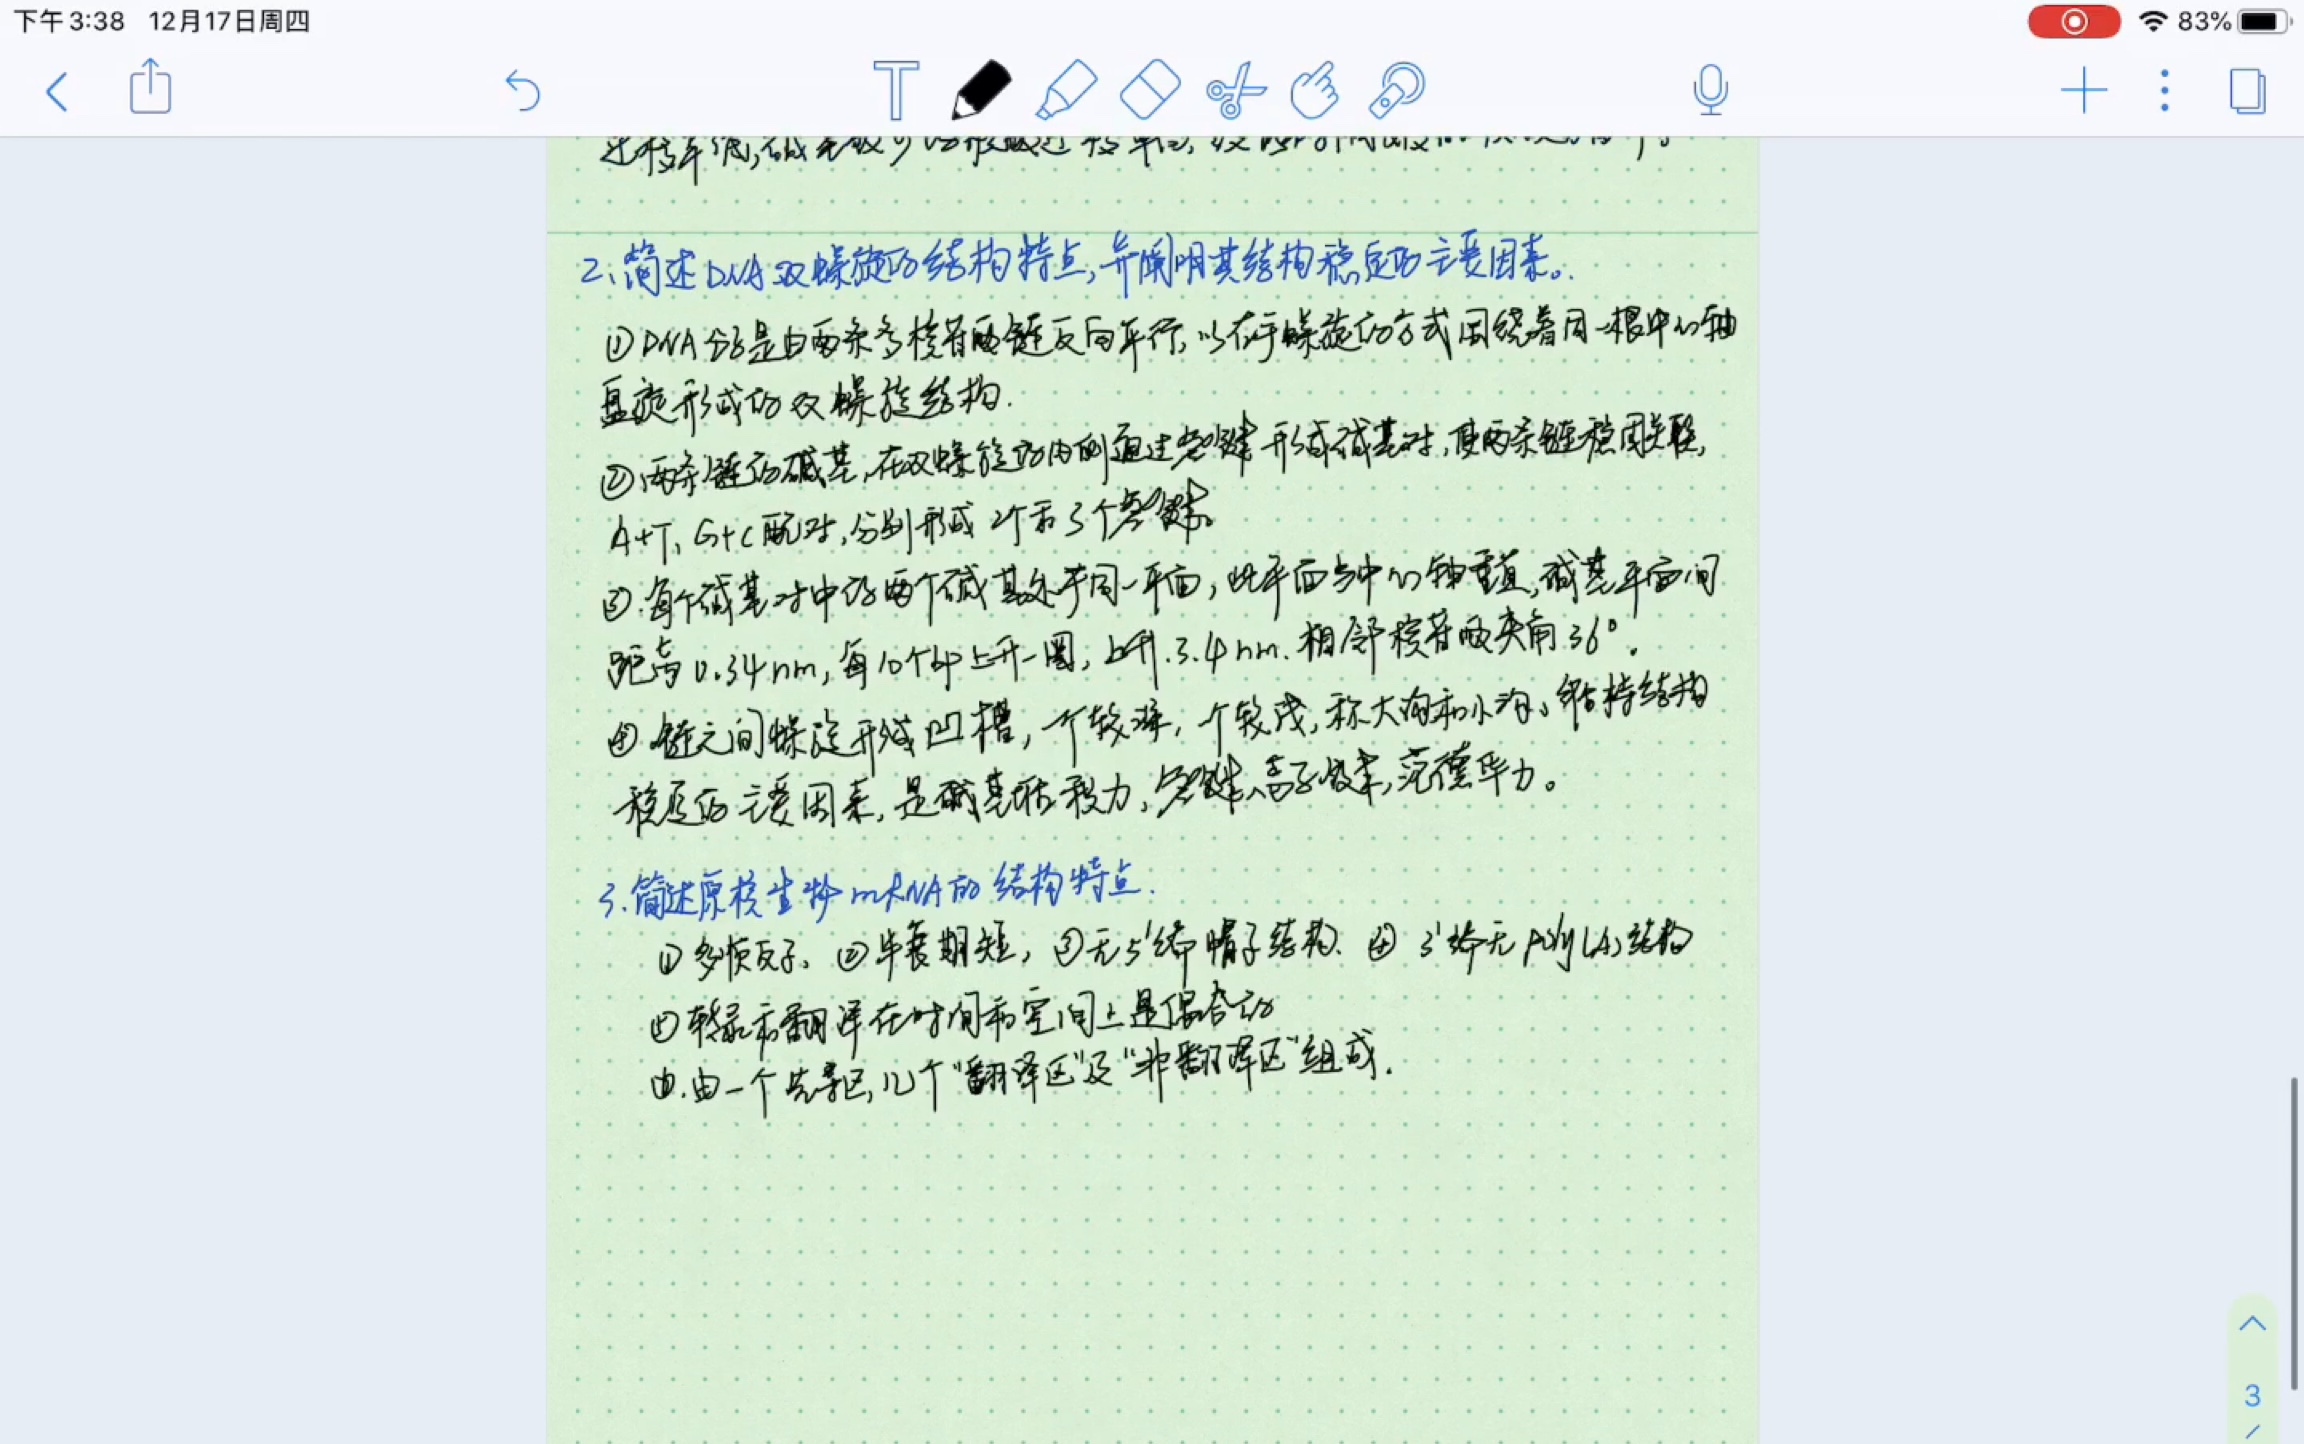 下午3:38 12月17日周四
83%
2、简述DNA双螺旋的结构特点,并阐明其结构稳定的主要因素。
①DNA分子是由两条多核苷酸链反向平行,以右手螺旋的方式围绕着同一根中心轴
盘旋形成的双螺旋结构.
②两条链的碱基,在双螺旋的内侧通过氢键形成碱基对,使两条链稳固关联,
A+T、G+C配对,分别形成2个和3个氢键。
③.每个碱基对中的两个碱基处于同一平面,此平面与中心轴垂直,碱基平面间
距离0.34nm,每10个bp上升一圈,上升.3.4nm.相邻核苷酸夹角36°.
④.链之间螺旋形成凹槽,一个较深,一个较浅,称大沟和小沟、维持结构
稳定的主要因素,是碱基堆积力,氢键、离子效应,范德华力。
3.简述原核生物mRNA的结构特点.
①多顺反子、②半衰期短,③无5'端帽子结构、④3'端无Poly(A)结构
转录和翻译在时间和空间上是偶合的
.由一个先导区,几个"翻译区"及"非翻译区"组成.
3